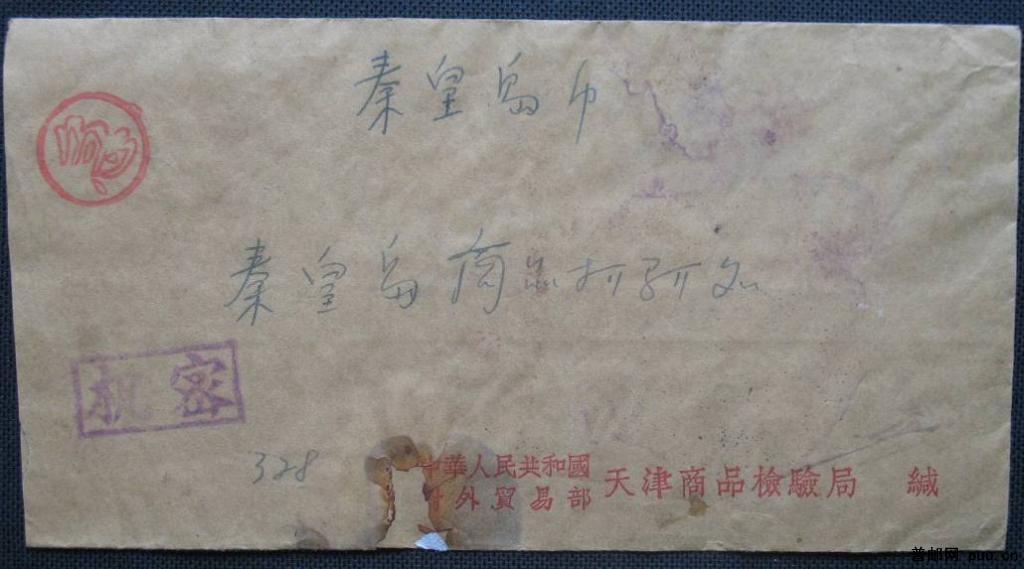 秦皇島市
秦皇島商品
机密
328
中華人民共和國
对外貿易部
天津商品檢驗局 緘
普邮网 puu.cn